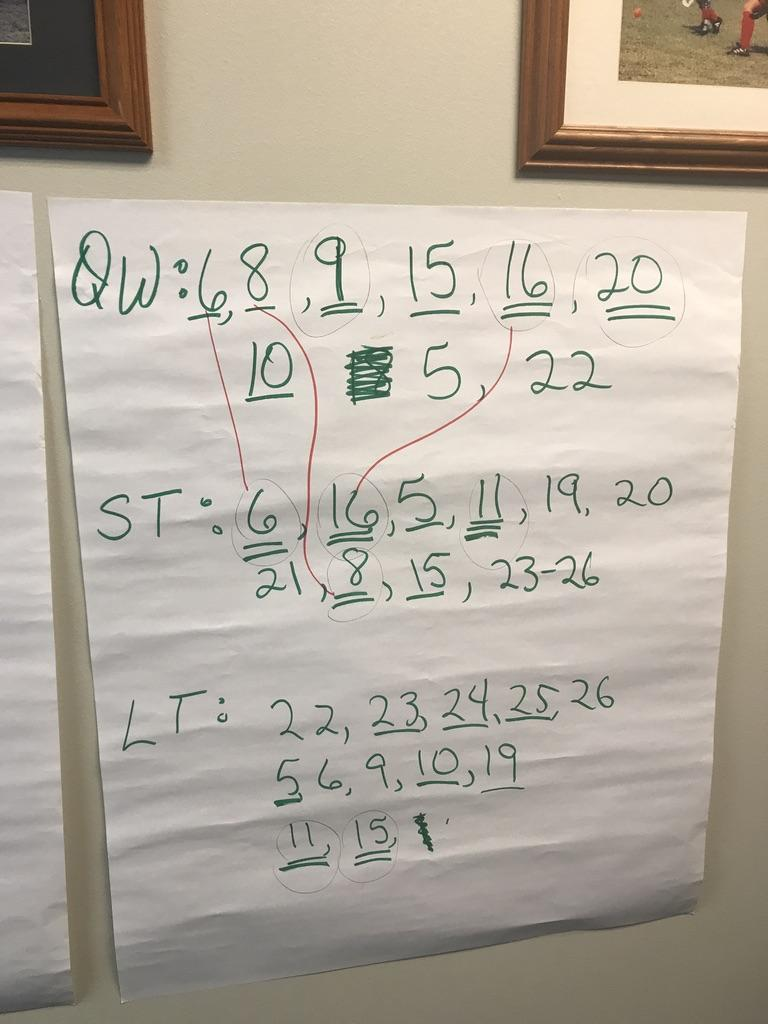 QW: 6, 8, 9, 15, 16, 20
10 5, 22
ST: 6, 16, 5, 11, 19, 20
21, 8, 15, 23-26
LT: 22, 23, 24, 25, 26
5 6, 9, 10, 19
11, 15,